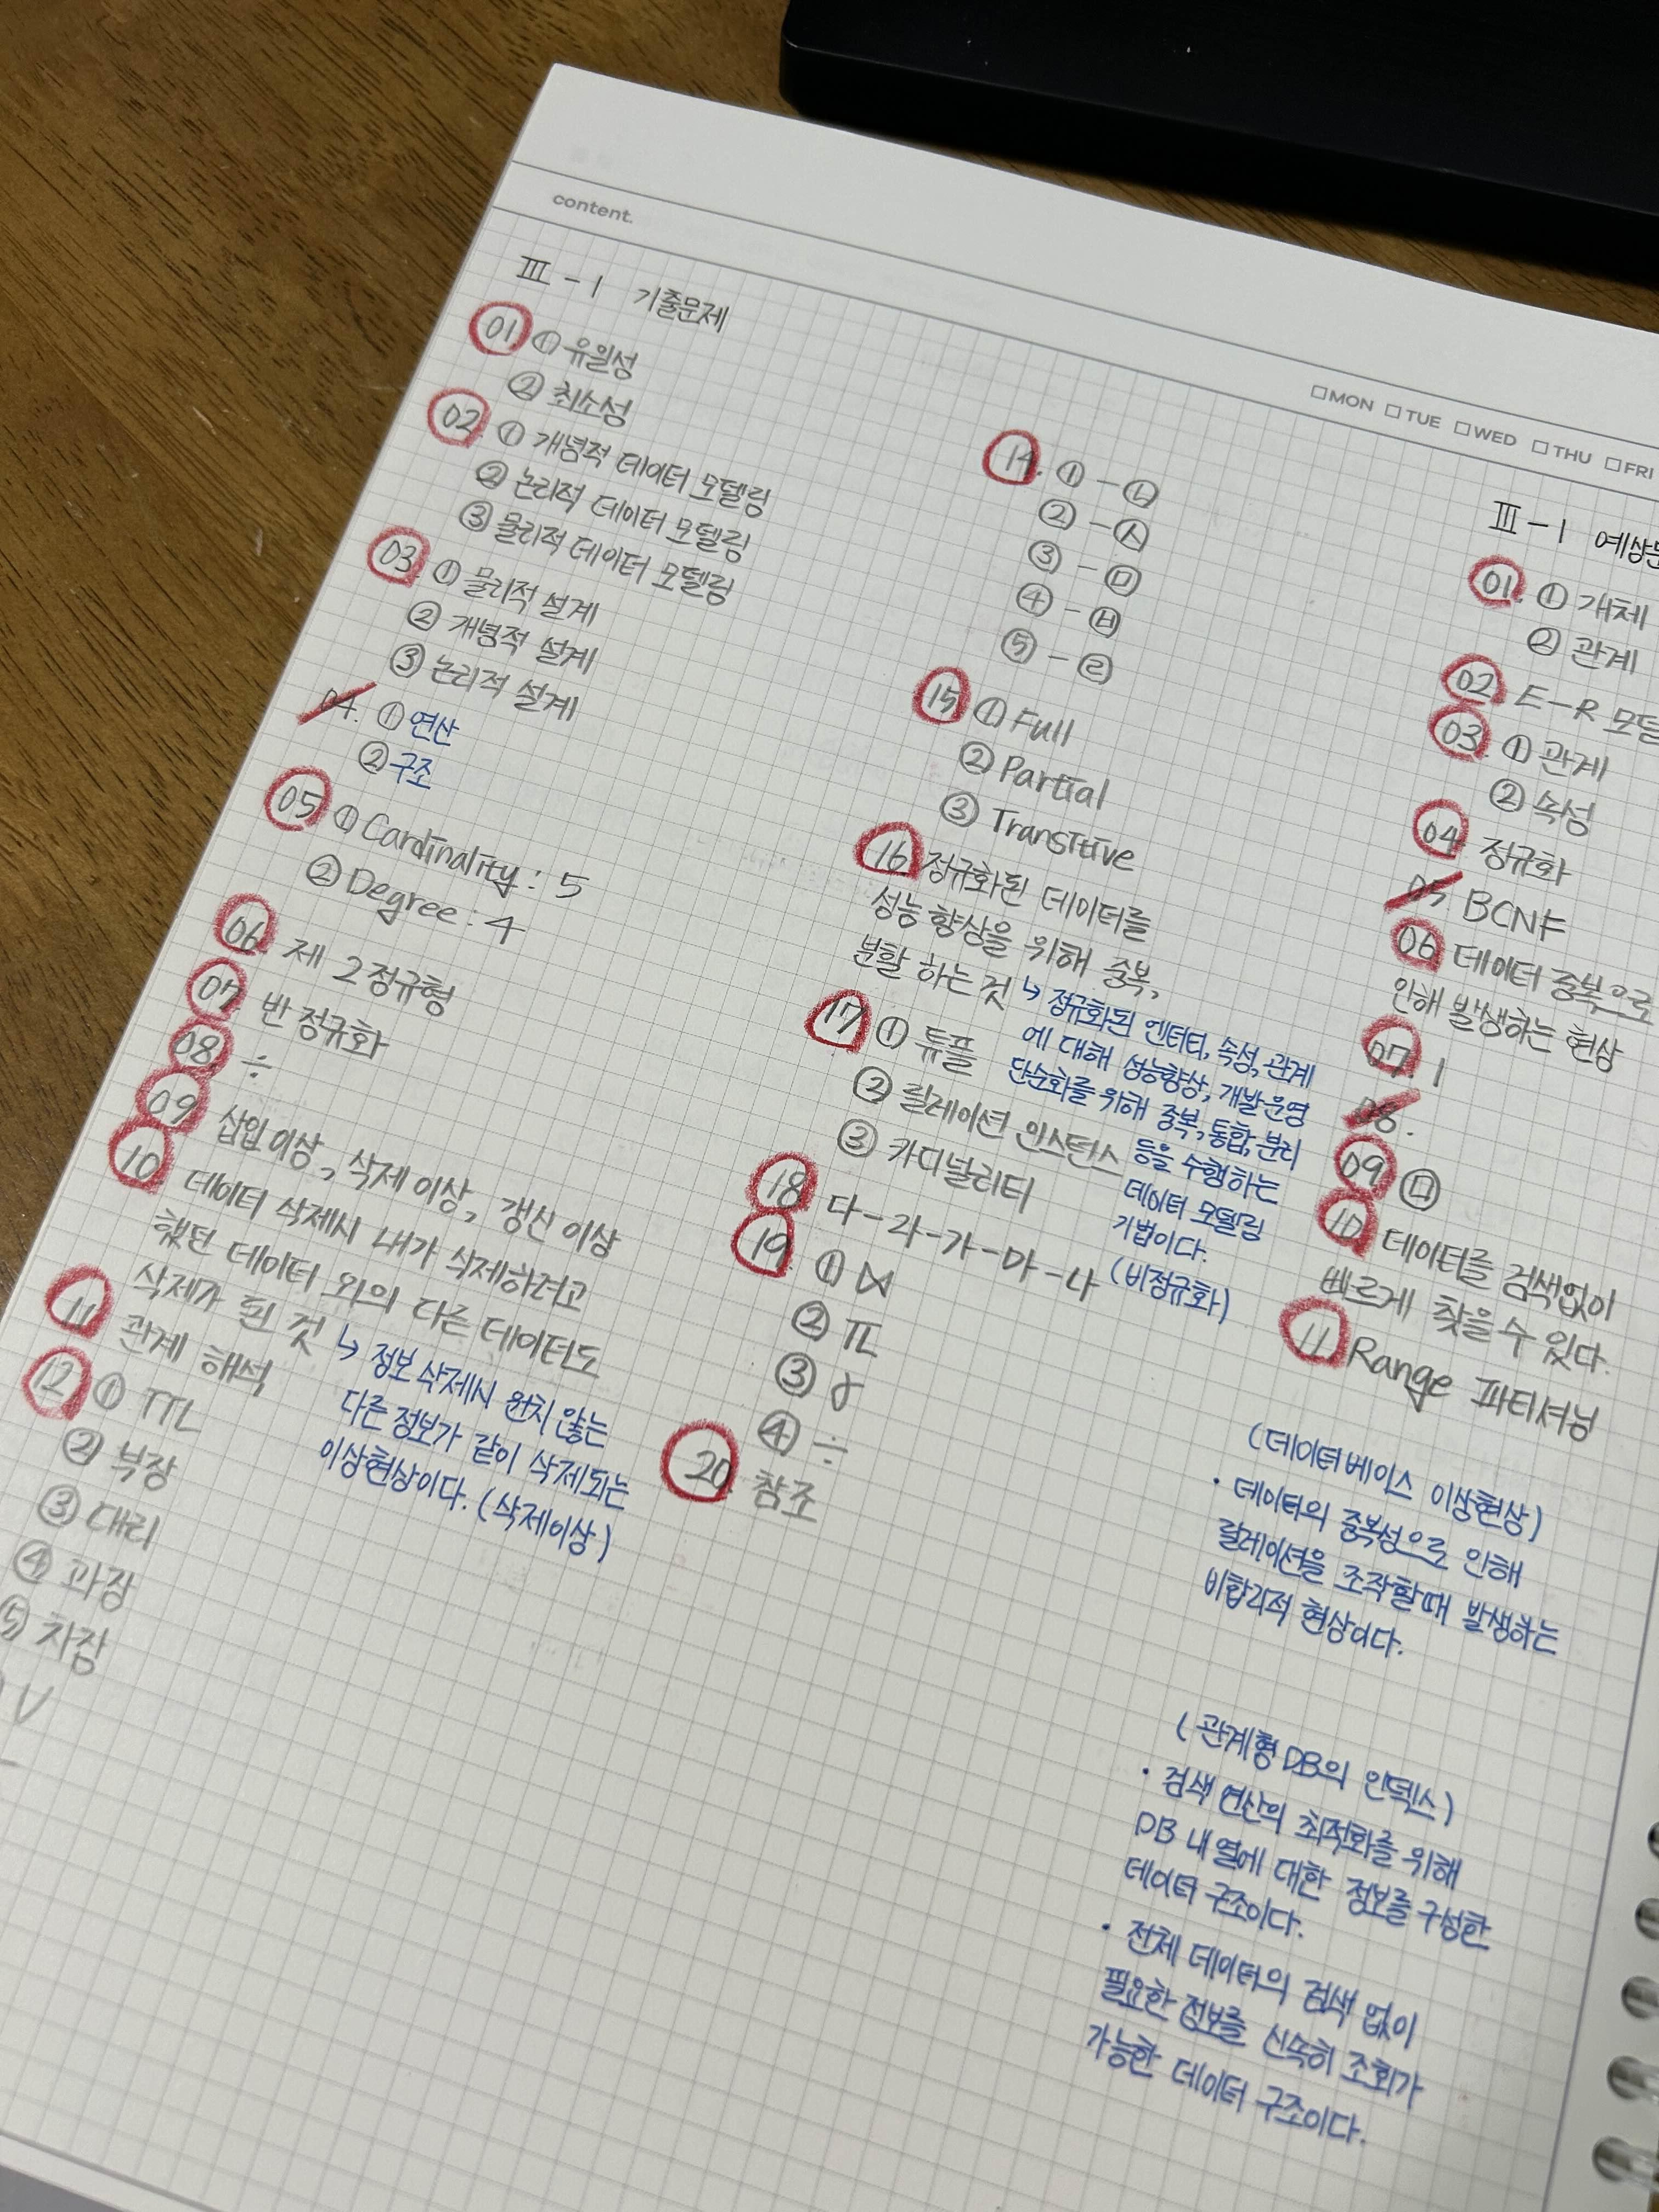 content.
□MON □TUE □WED □THU □FRI
Ⅲ-1 기출문제
01. ① 유일성
② 최소성
02. ① 개념적 데이터 모델링
② 논리적 데이터 모델링
③ 물리적 데이터 모델링
03. ① 물리적 설계
② 개념적 설계
③ 논리적 설계
04. ① 연산
② 구조
05. ① Cardinality : 5
② Degree : 4
06. 제 2정규형
07. 반 정규화
08. ÷
09. 삽입이상, 삭제이상, 갱신이상
10. 데이터 삭제시 내가 삭제하려고
했던 데이터 외의 다른 데이터도
삭제가 된 것
↳ 정보 삭제시 원치 않는
다른 정보가 같이 삭제되는
이상현상이다. (삭제이상)
11. 관계 해석
12. ① TTL
② 부장
③ 대리
④ 과장
⑤ 차장
V
14. ① - ㉡
② - ㉦
③ - ㉤
④ - ㉥
⑤ - ㉣
15. ① Full
② Partial
③ Transitive
16. 정규화된 데이터를
성능 향상을 위해 중복,
분할 하는 것
↳ 정규화된 엔터티, 속성, 관계
에 대해 성능향상, 개발운영
단순화를 위해 중복, 통합, 분리
등을 수행하는
데이터 모델링
기법이다.
(비정규화)
17. ① 튜플
② 릴레이션 인스턴스
③ 카디널리티
18. 다-라-가-마-나
19. ① ⋈
② π
③ γ
④ ÷
20. 참조
Ⅲ-1 예상
01. ① 개체
② 관계
02. E-R 모델
03. ① 관계
② 속성
04. 정규화
05. BCNF
06. 데이터 중복으로
인해 발생하는 현상
07. 1
08.
09. ㉤
10. 데이터를 검색없이
빠르게 찾을수 있다.
11. Range 파티셔닝
(데이터베이스 이상현상)
· 데이터의 중복성으로 인해
릴레이션을 조작할때 발생하는
비합리적 현상이다.
(관계형 DB의 인덱스)
· 검색 연산의 최적화를 위해
DB 내 열에 대한 정보를 구성한
데이터 구조이다.
· 전체 데이터의 검색 없이
필요한 정보를 신속히 조회가
가능한 데이터 구조이다.